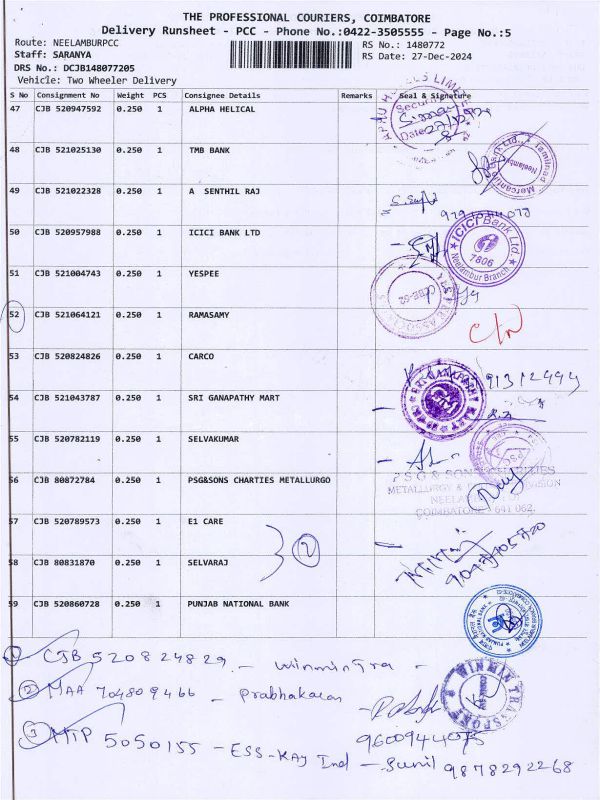 THE PROFESSIONAL COURIERS, COIMBATORE
Delivery Runsheet - PCC - Phone No.:0422-3505555 - Page No.:5
Route: NEELAMBURPCC RS No.: 1480772
Staff: SARANYA RS Date: 27-Dec-2024
DRS No.: DCJB148077205
Vehicle: Two Wheeler Delivery
S No Consignment No Weight PCS Consignee Details Remarks Seal & Signature
47 CJB 520947592 0.250 1 ALPHA HELICAL
48 CJB 521025130 0.250 1 TMB BANK
49 CJB 521022328 0.250 1 A SENTHIL RAJ
50 CJB 520957988 0.250 1 ICICI BANK LTD
ICICI Bank Ltd
7806
Neelambur Branch
51 CJB 521004743 0.250 1 YESPEE
52 CJB 521064121 0.250 1 RAMASAMY
53 CJB 520824826 0.250 1 CARCO
54 CJB 521043787 0.250 1 SRI GANAPATHY MART
55 CJB 520782119 0.250 1 SELVAKUMAR
56 CJB 80872784 0.250 1 PSG&SONS CHARTIES METALLURGO
PSG & SONS CHARITIES
METALLURGY & DIVISION
COIMBATORE - 641 062.
57 CJB 520789573 0.250 1 E1 CARE
2
58 CJB 80831870 0.250 1 SELVARAJ
59 CJB 520860728 0.250 1 PUNJAB NATIONAL BANK
1 CJB 520824829 - Winmintra -
2 MAA 704809466 - Prabhakaran
WINMIN TRANSPORT
3 MTP 5050155 - ESS-Kay Ind - Sunil 9878292268